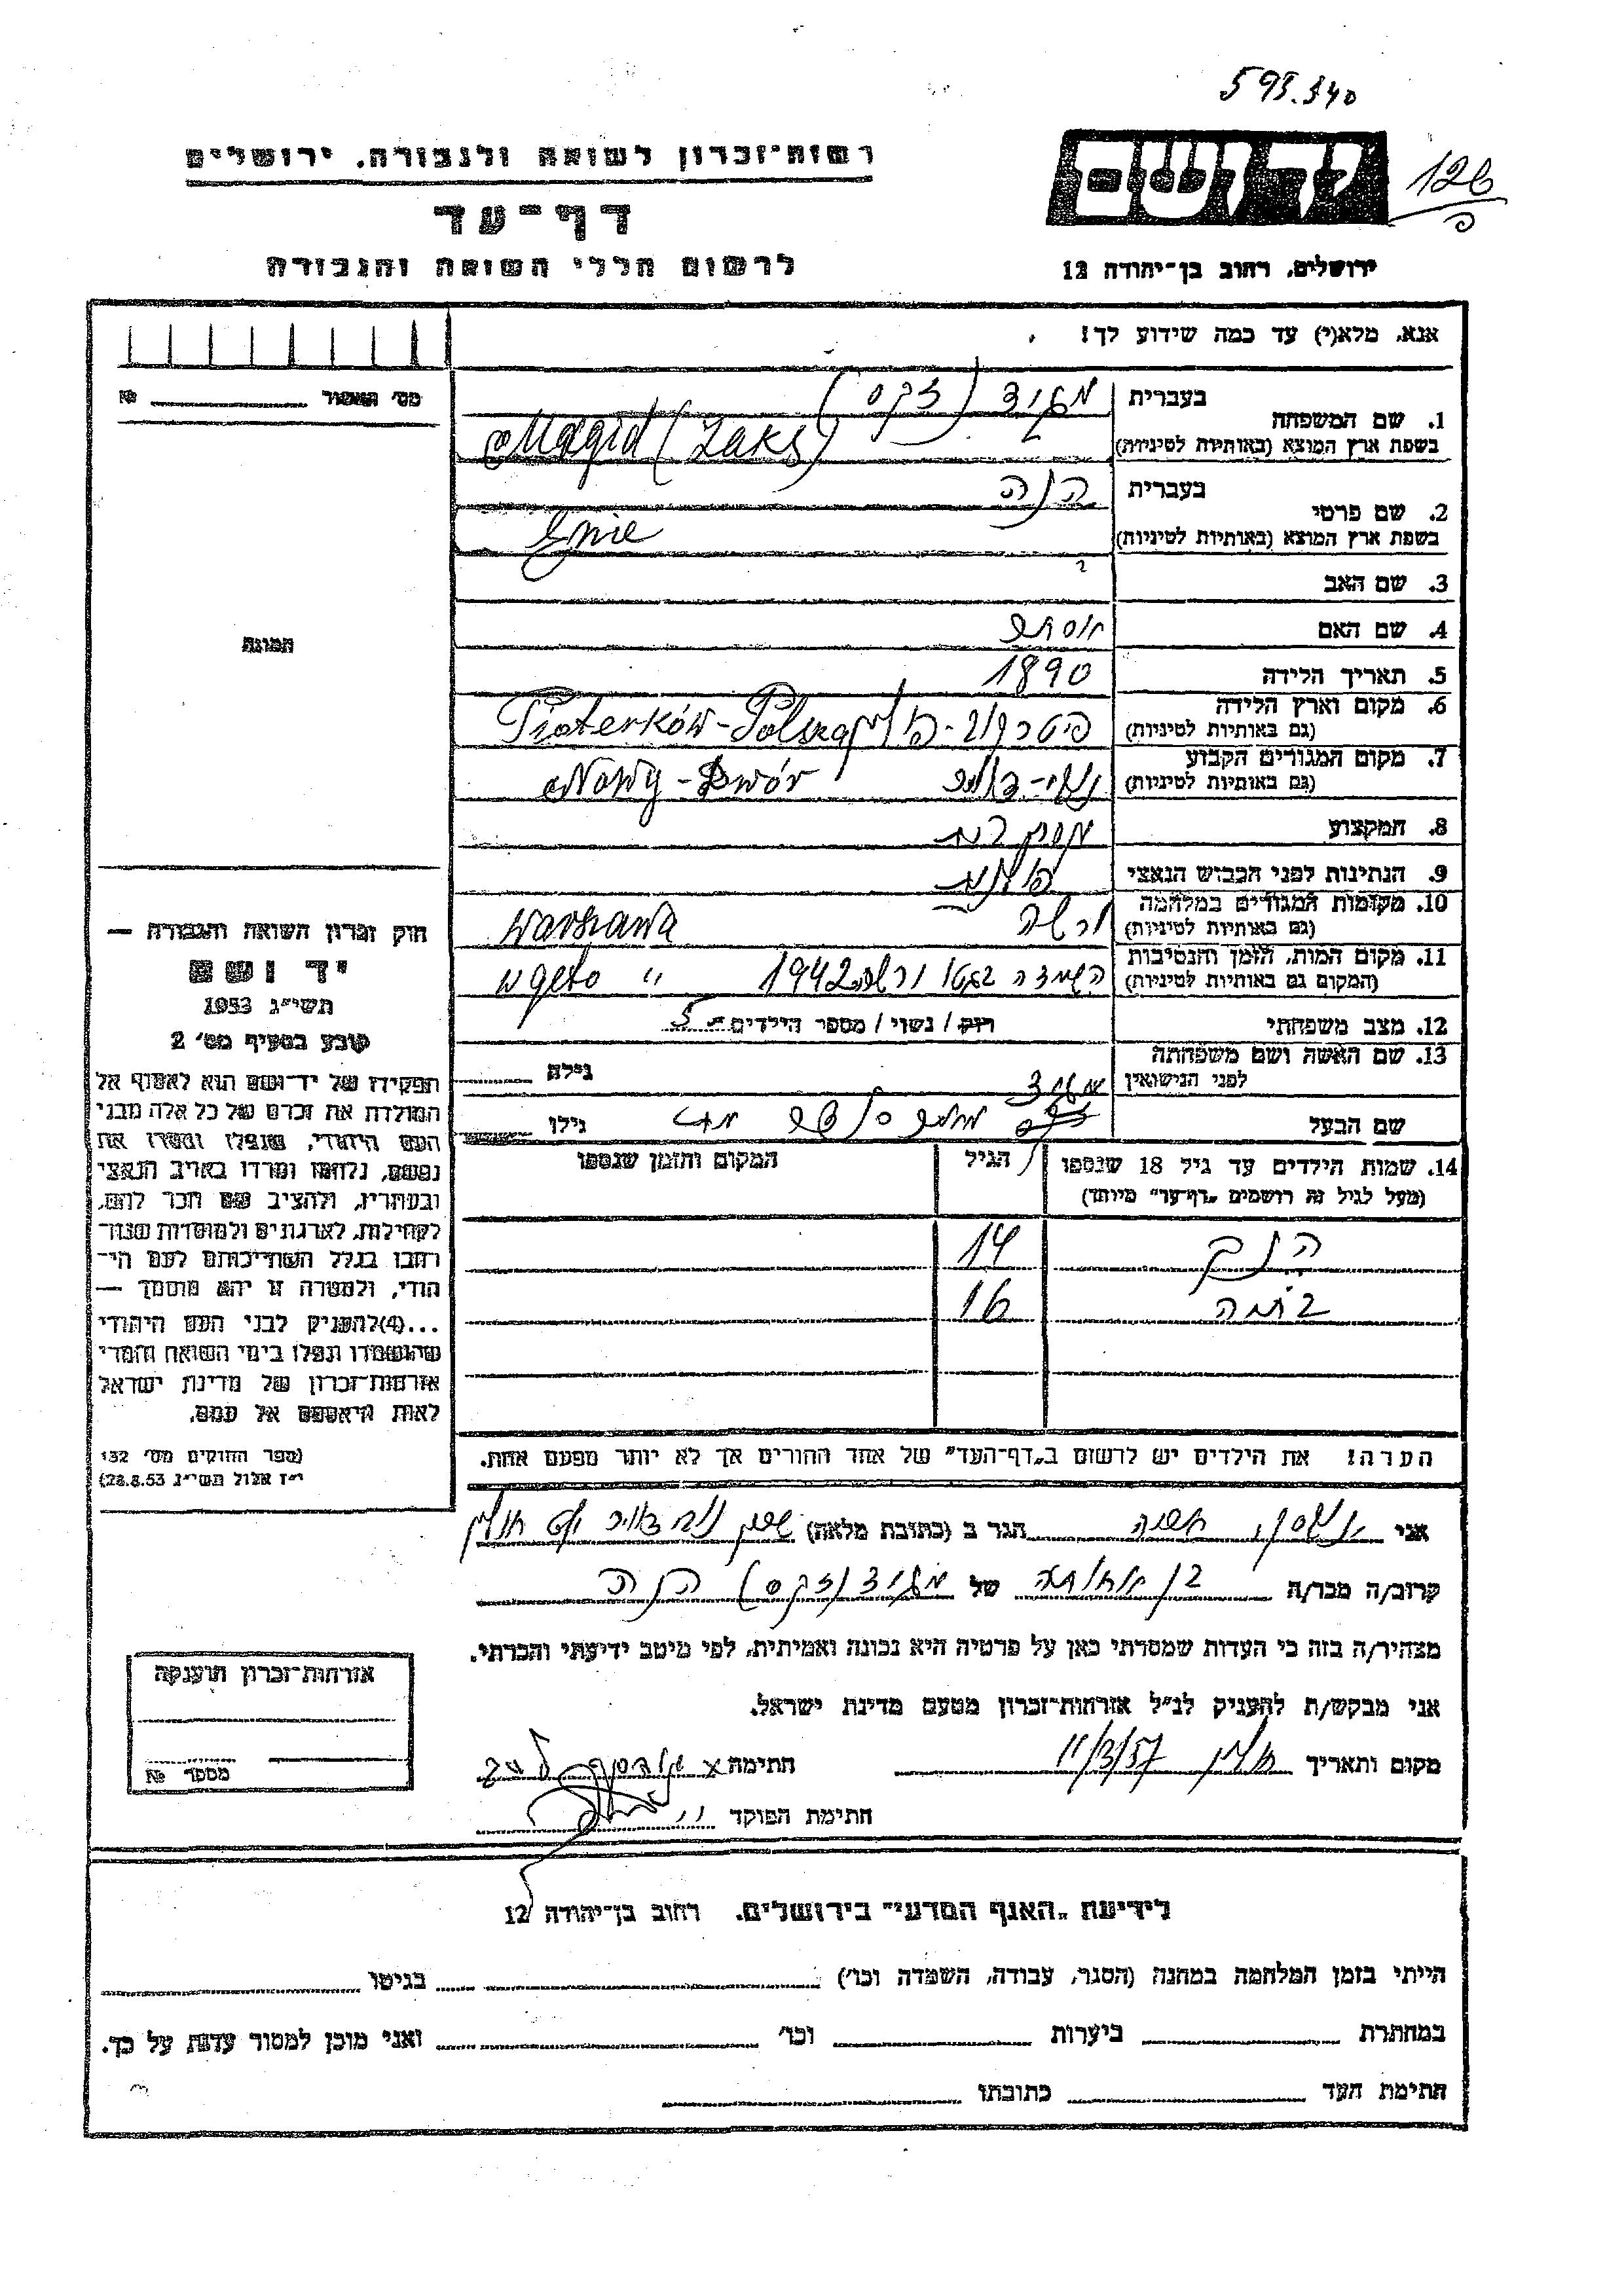 593.340
רשות-זכרון לשואה ולגבורה. ירושלים
יד ושם
126
דף-עד
לרשום חללי השואה והגבורה
ירושלים, רחוב בן-יהודה 12
אנא, מלא(י) עד כמה שידוע לך!
מס׳ האשור №
1. שם המשפחה
בעברית מגיד (זקס)
בשפת ארץ המוצא (באותיות לטיניות) Magid (Zaks)
2. שם פרטי
בעברית הנה
בשפת ארץ המוצא (באותיות לטיניות)
3. שם האב
4. שם האם
5. תאריך הלידה 1890
6. מקום וארץ הלידה
(גם באותיות לטיניות) Pioterków-Polska
7. מקום המגורים הקבוע
(גם באותיות לטיניות) Nowy-Dwór
8. המקצוע
9. הנתינות לפני הכבוש הנאצי
10. מקומות המגורים במלחמה
(גם באותיות לטיניות) ורשה Warszawa
11. מקום המות, הזמן והנסיבות
(המקום גם באותיות לטיניות) השמדה בגטו ורשה 1942 " w geto
12. מצב משפחתי רוק / נשוי / מספר הילדים 5
13. שם האשה ושם משפחתה
לפני הנישואין גילה
שם הבעל גילו
14. שמות הילדים עד גיל 18 שנספו
(מעל לגיל זה רושמים „דף-עד" מיוחד)
הגיל
המקום והזמן שנספו
14
16
הערה! את הילדים יש לרשום ב„דף-העד" של אחד ההורים אך לא יותר מפעם אחת.
תמונה
חוק זכרון השואה והגבורה —
יד ושם
תשי״ג 1953
קובע בסעיף מס׳ 2
תפקידו של יד-ושם הוא לאסוף אל
המולדת את זכרם של כל אלה מבני
העם היהודי, שנפלו ומסרו את
נפשם, נלחמו ומרדו באויב הנאצי
ובעוזריו, ולהציב שם וזכר להם,
לקהילות, לארגונים ולמוסדות שנח־
רבו בגלל השתייכותם לעם הי־
הודי, ולמטרה זו יהא מוסמך —
...(4) להעניק לבני העם היהודי
שהושמדו ונפלו בימי השואה והמרי
אזרחות-זכרון של מדינת ישראל
לאות היאספם אל עמם.
(ספר החוקים מס׳ 132
י״ז אלול תשי״ג 28.8.53)
אני הגר ב (כתובת מלאה)
קרוב/ה מכר/ה של מגיד (זקס) הנה
מצהיר/ה בזה כי העדות שמסרתי כאן על פרטיה היא נכונה ואמיתית, לפי מיטב ידיעתי והכרתי.
אני מבקש/ת להעניק לנ״ל אזרחות-זכרון מטעם מדינת ישראל.
מקום ותאריך 11/3/57 חתימה
חתימת הפוקד
אזרחות-זכרון הוענקה
מספר №
לידיעת „האגף המדעי" בירושלים. רחוב בן-יהודה 12
הייתי בזמן המלחמה במחנה (הסגר, עבודה, השמדה וכו׳) בגיטו
במחתרת ביערות וכו׳ ואני מוכן למסור עדות על כך.
חתימת העד כתובתו